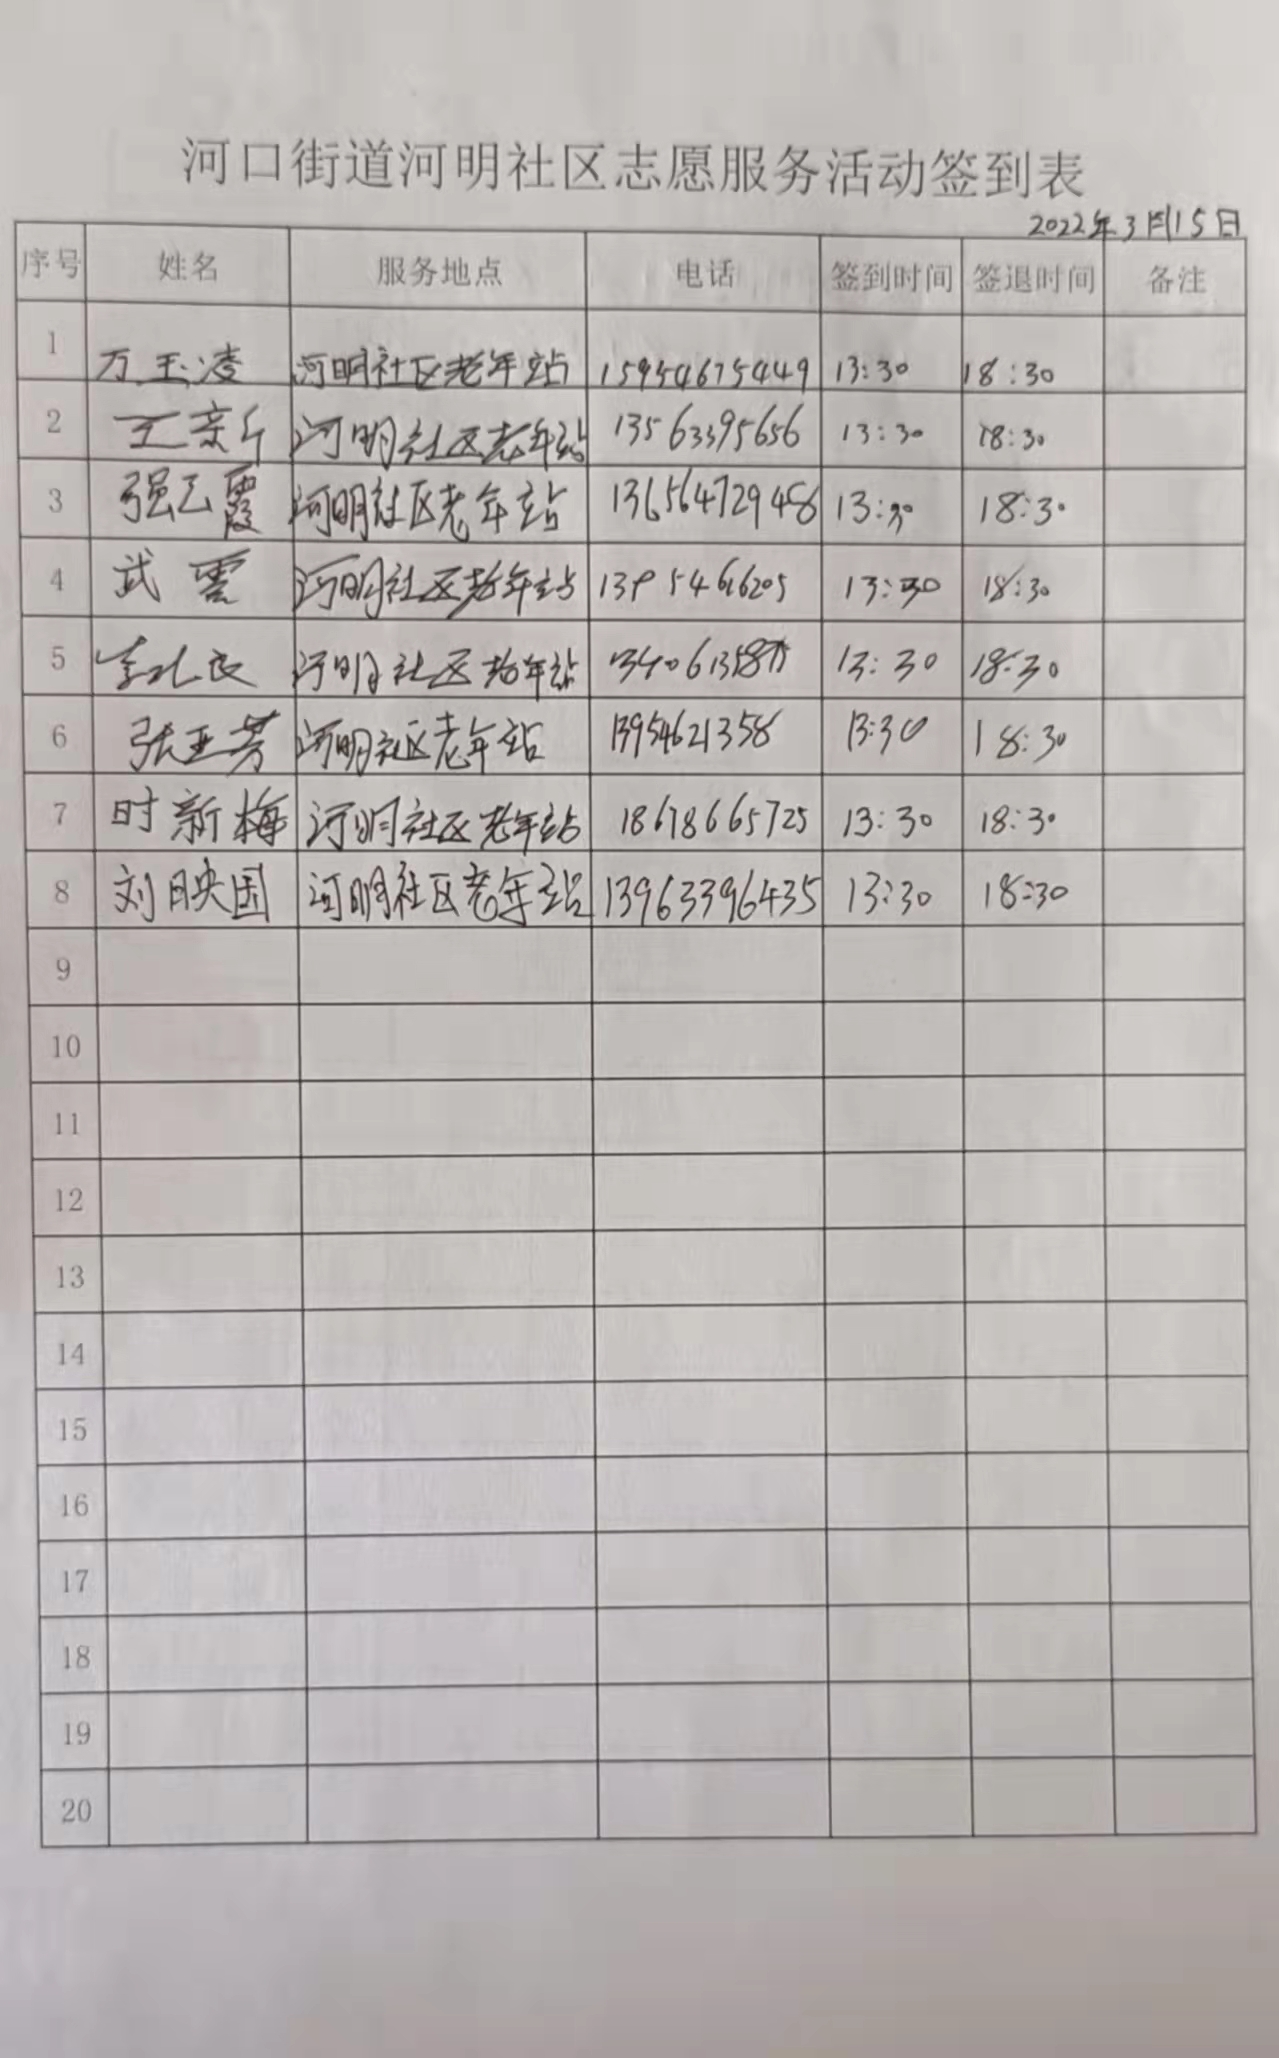 河口街道河明社区志愿服务活动签到表
2022年3月15日
序号 姓名 服务地点 电话 签到时间 签退时间 备注
1 万玉凌 河明社区老年站 15954675449 13:30 18:30
2 王新 河明社区老年站 13563395656 13:30 18:30
3 强云霞 河明社区老年站 13656472948 13:30 18:30
4 武雲 河明社区老年站 13:30 18:30
5 河明社区老年站 13:30 18:30
6 张亚芳 河明社区老年站 13954621358 13:30 18:30
7 时新梅 河明社区老年站 18678665725 13:30 18:30
8 刘映国 河明社区老年站 13963396435 13:30 18:30
9
10
11
12
13
14
15
16
17
18
19
20